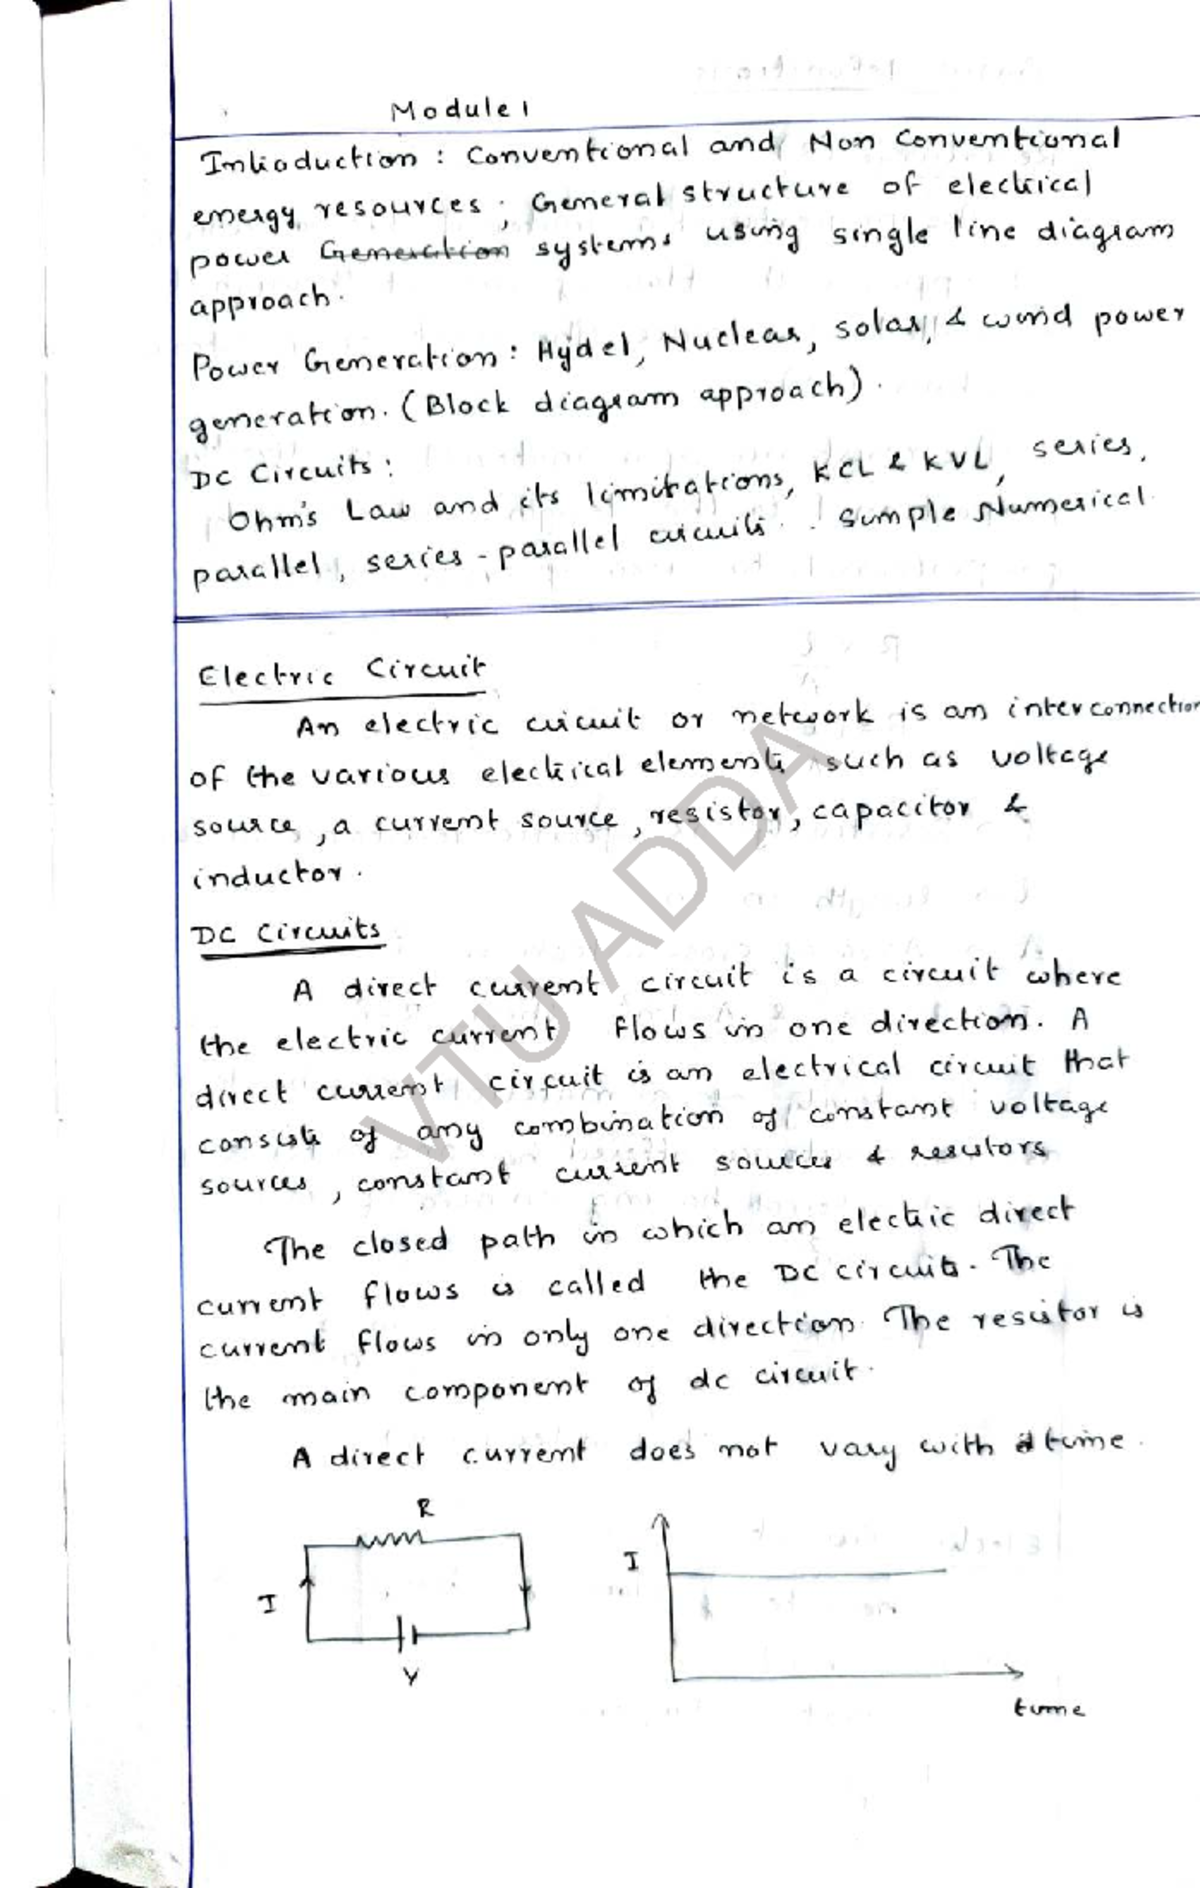 Module 1
Introduction : Conventional and Non Conventional
energy resources ; General structure of electrical
power Generation systems using single line diagram
approach.
Power Generation : Hydel, Nuclear, solar, & wind power
generation. (Block diagram approach).
DC Circuits :
Ohm's Law and its limitations, KCL & KVL, series,
parallel, series - parallel circuits. Simple Numerical
Electric Circuit
An electric circuit or network is an interconnection
of the various electrical elements such as voltage
source, a current source, resistor, capacitor &
inductor.
DC Circuits
A direct current circuit is a circuit where
the electric current flows in one direction. A
direct current circuit is an electrical circuit that
consists of any combination of constant voltage
sources, constant current sources & resistors
The closed path in which an electric direct
current flows is called the DC circuits. The
current flows in only one direction. The resistor is
the main component of dc circuit.
A direct current does not vary with time.
R
I
V
I
time
VTU ADDA